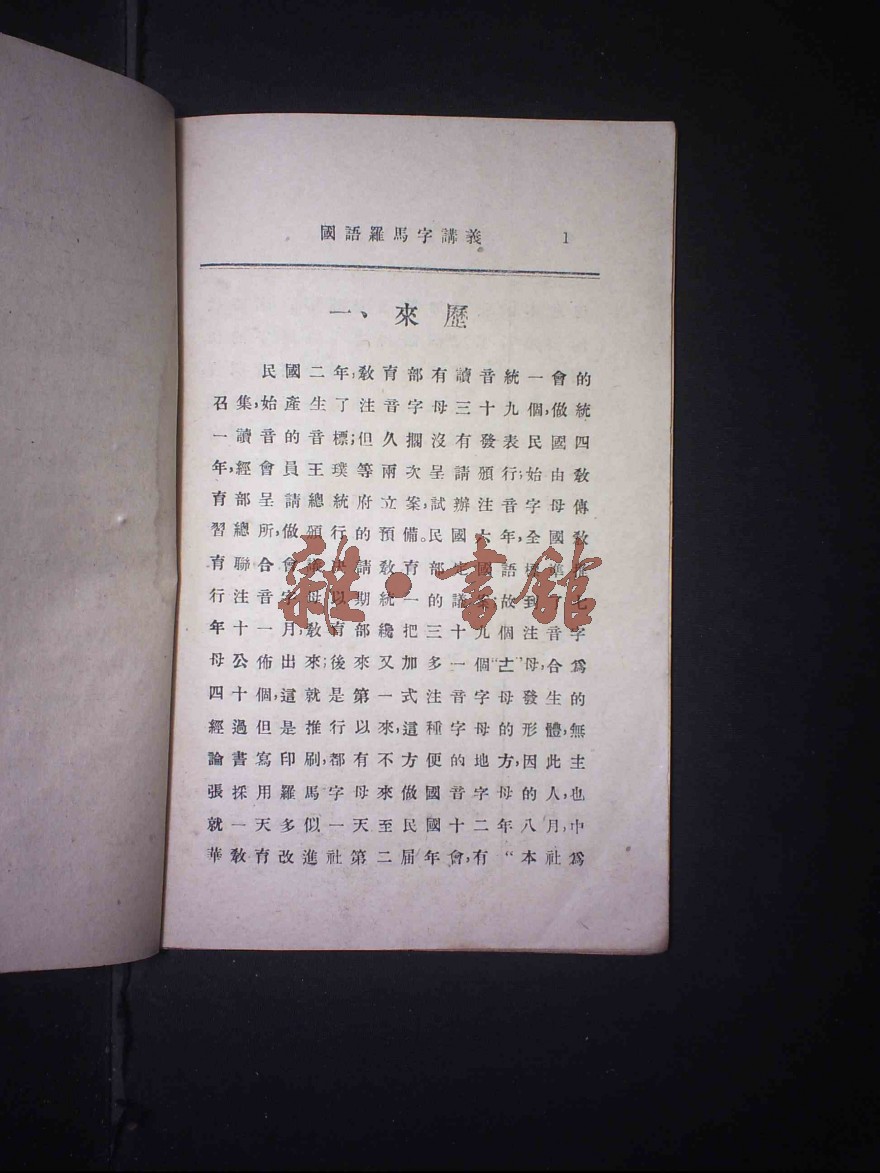 國語羅馬字講義 1
一、來歷
民國二年，敎育部有讀音統一會的
召集，始產生了注音字母三十九個，做統
一讀音的音標；但久擱沒有發表民國四
年，經會員王璞等兩次呈請頒行；始由敎
育部呈請總統府立案，試辦注音字母傳
習總所，做頒行的預備。民國六年，全國敎
育聯合會 決請敎育部 國語標準推
行注音字母以期統一的議案，故到了七
年十一月，敎育部纔把三十九個注音字
母公佈出來；後來又加多一個“ㄜ”母，合爲
四十個，這就是第一式注音字母發生的
經過但是推行以來，這種字母的形體，無
論書寫印刷，都有不方便的地方，因此主
張採用羅馬字母來做國音字母的人，也
就一天多似一天至民國十二年八月，中
華敎育改進社第二届年會，有“本社爲
雜·書館